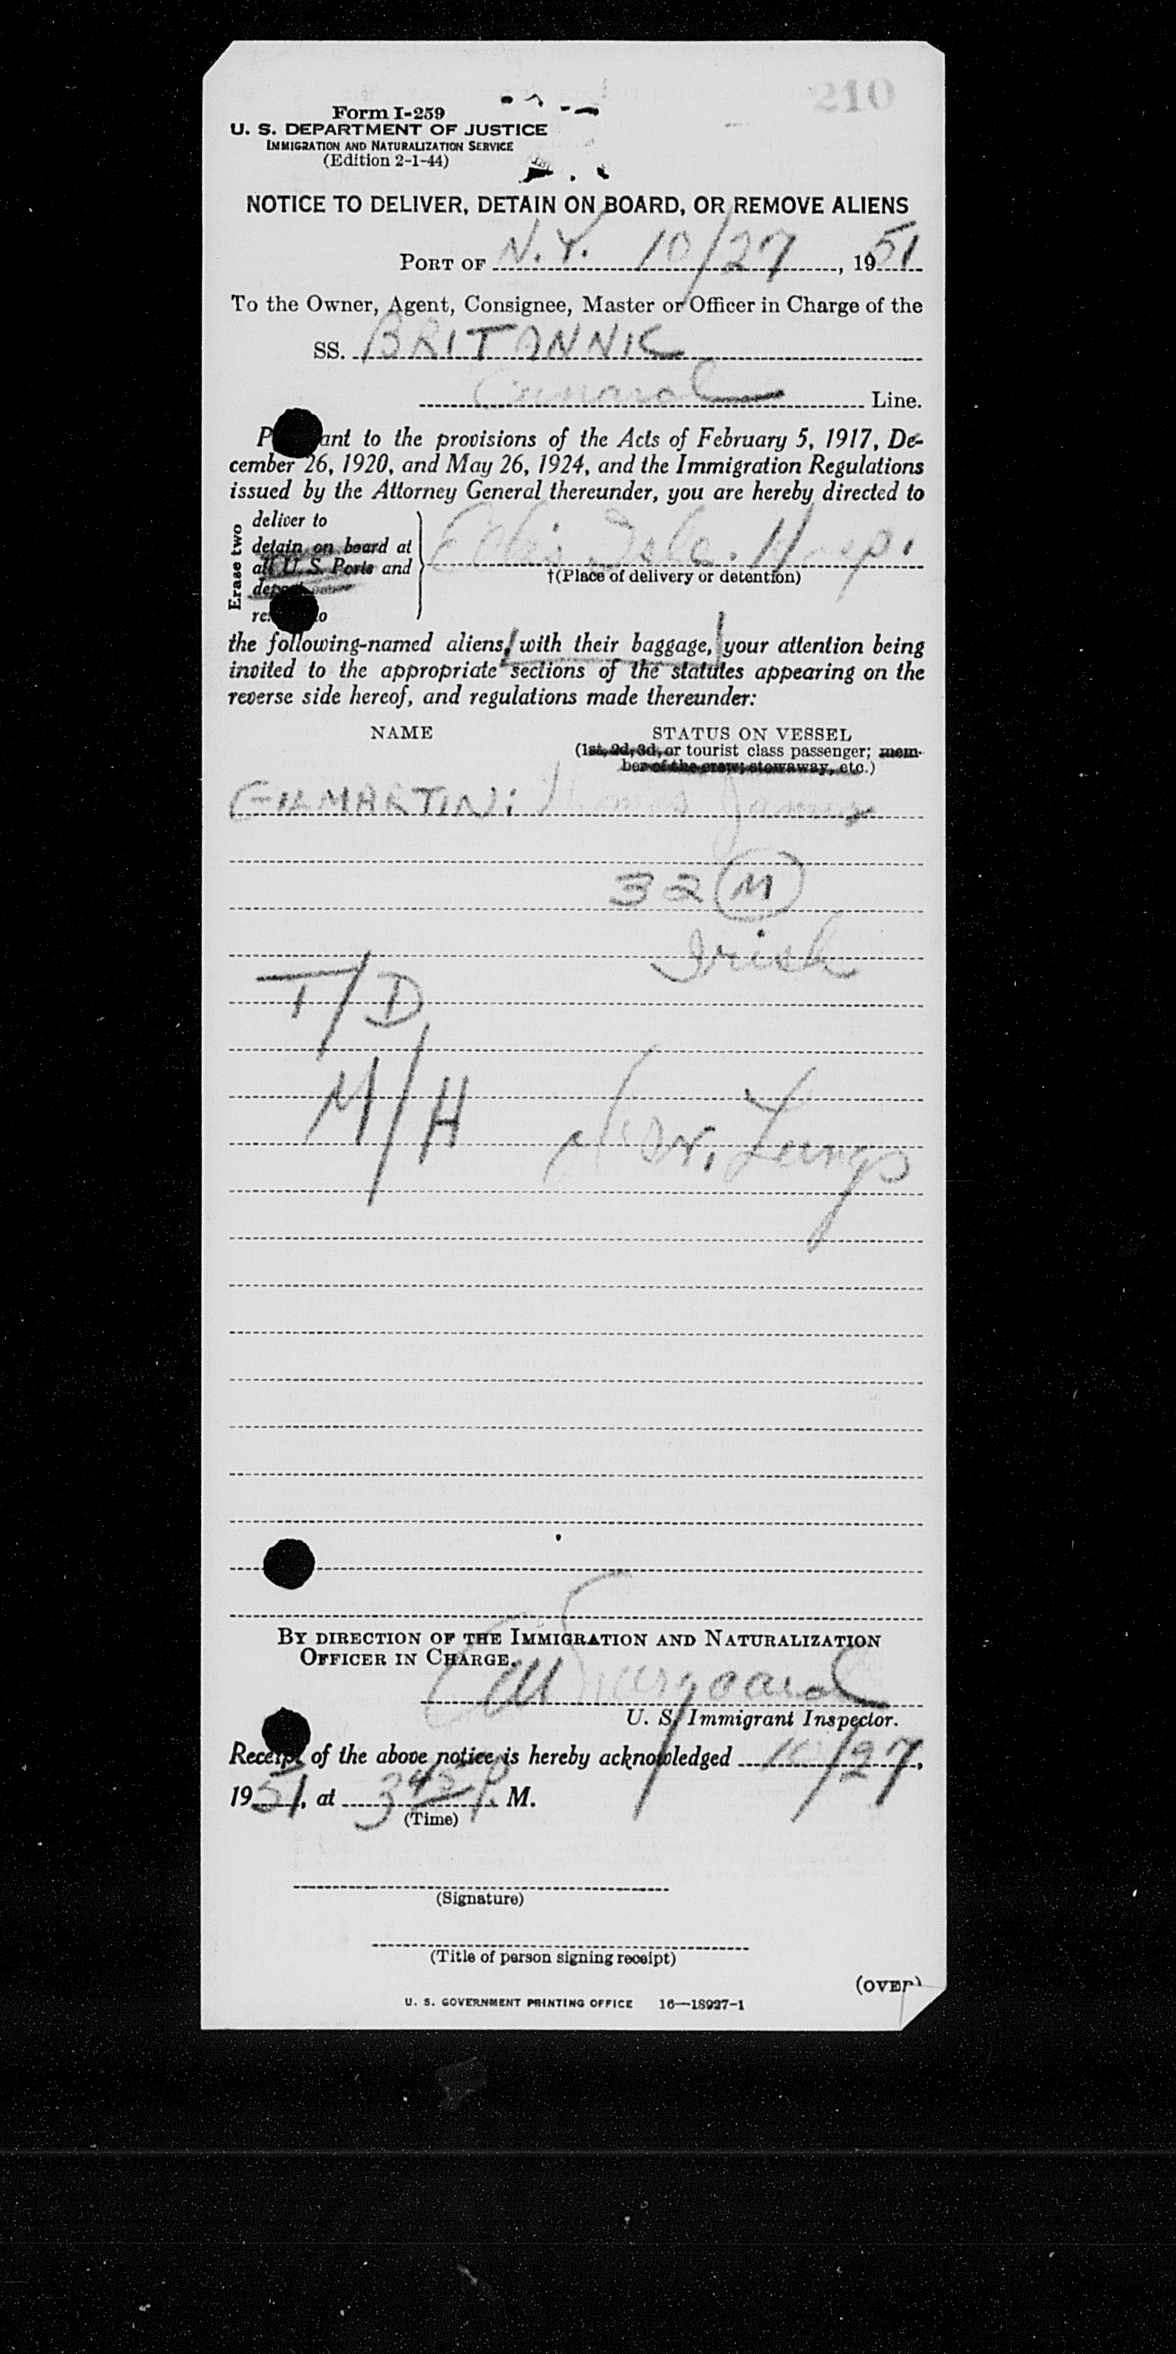 210
Form I-259
U. S. DEPARTMENT OF JUSTICE
IMMIGRATION AND NATURALIZATION SERVICE
(Edition 2-1-44)
NOTICE TO DELIVER, DETAIN ON BOARD, OR REMOVE ALIENS
PORT OF N.Y. 10/27, 1951
To the Owner, Agent, Consignee, Master or Officer in Charge of the
SS. BRITANNIC
Cunard Line.
P ant to the provisions of the Acts of February 5, 1917, De-
cember 26, 1920, and May 26, 1924, and the Immigration Regulations
issued by the Attorney General thereunder, you are hereby directed to
Erase two
deliver to
detain on board at
all U. S. Ports and
Ellis Isle. Hosp.
†(Place of delivery or detention)
the following-named aliens, with their baggage, your attention being
invited to the appropriate sections of the statutes appearing on the
reverse side hereof, and regulations made thereunder:
NAME STATUS ON VESSEL
(1st, 2d, 3d, or tourist class passenger; mem-
ber of the crew; stowaway, etc.)
GILMARTIN: Thomas James
32 (M)
Irish
T/D
M/H Lungs
BY DIRECTION OF THE IMMIGRATION AND NATURALIZATION
OFFICER IN CHARGE.
U. S. Immigrant Inspector.
Receipt of the above notice is hereby acknowledged 10/27,
1951, at 3 45 P. M.
(Time)
(Signature)
(Title of person signing receipt)
(OVER)
U. S. GOVERNMENT PRINTING OFFICE 16—18927-1